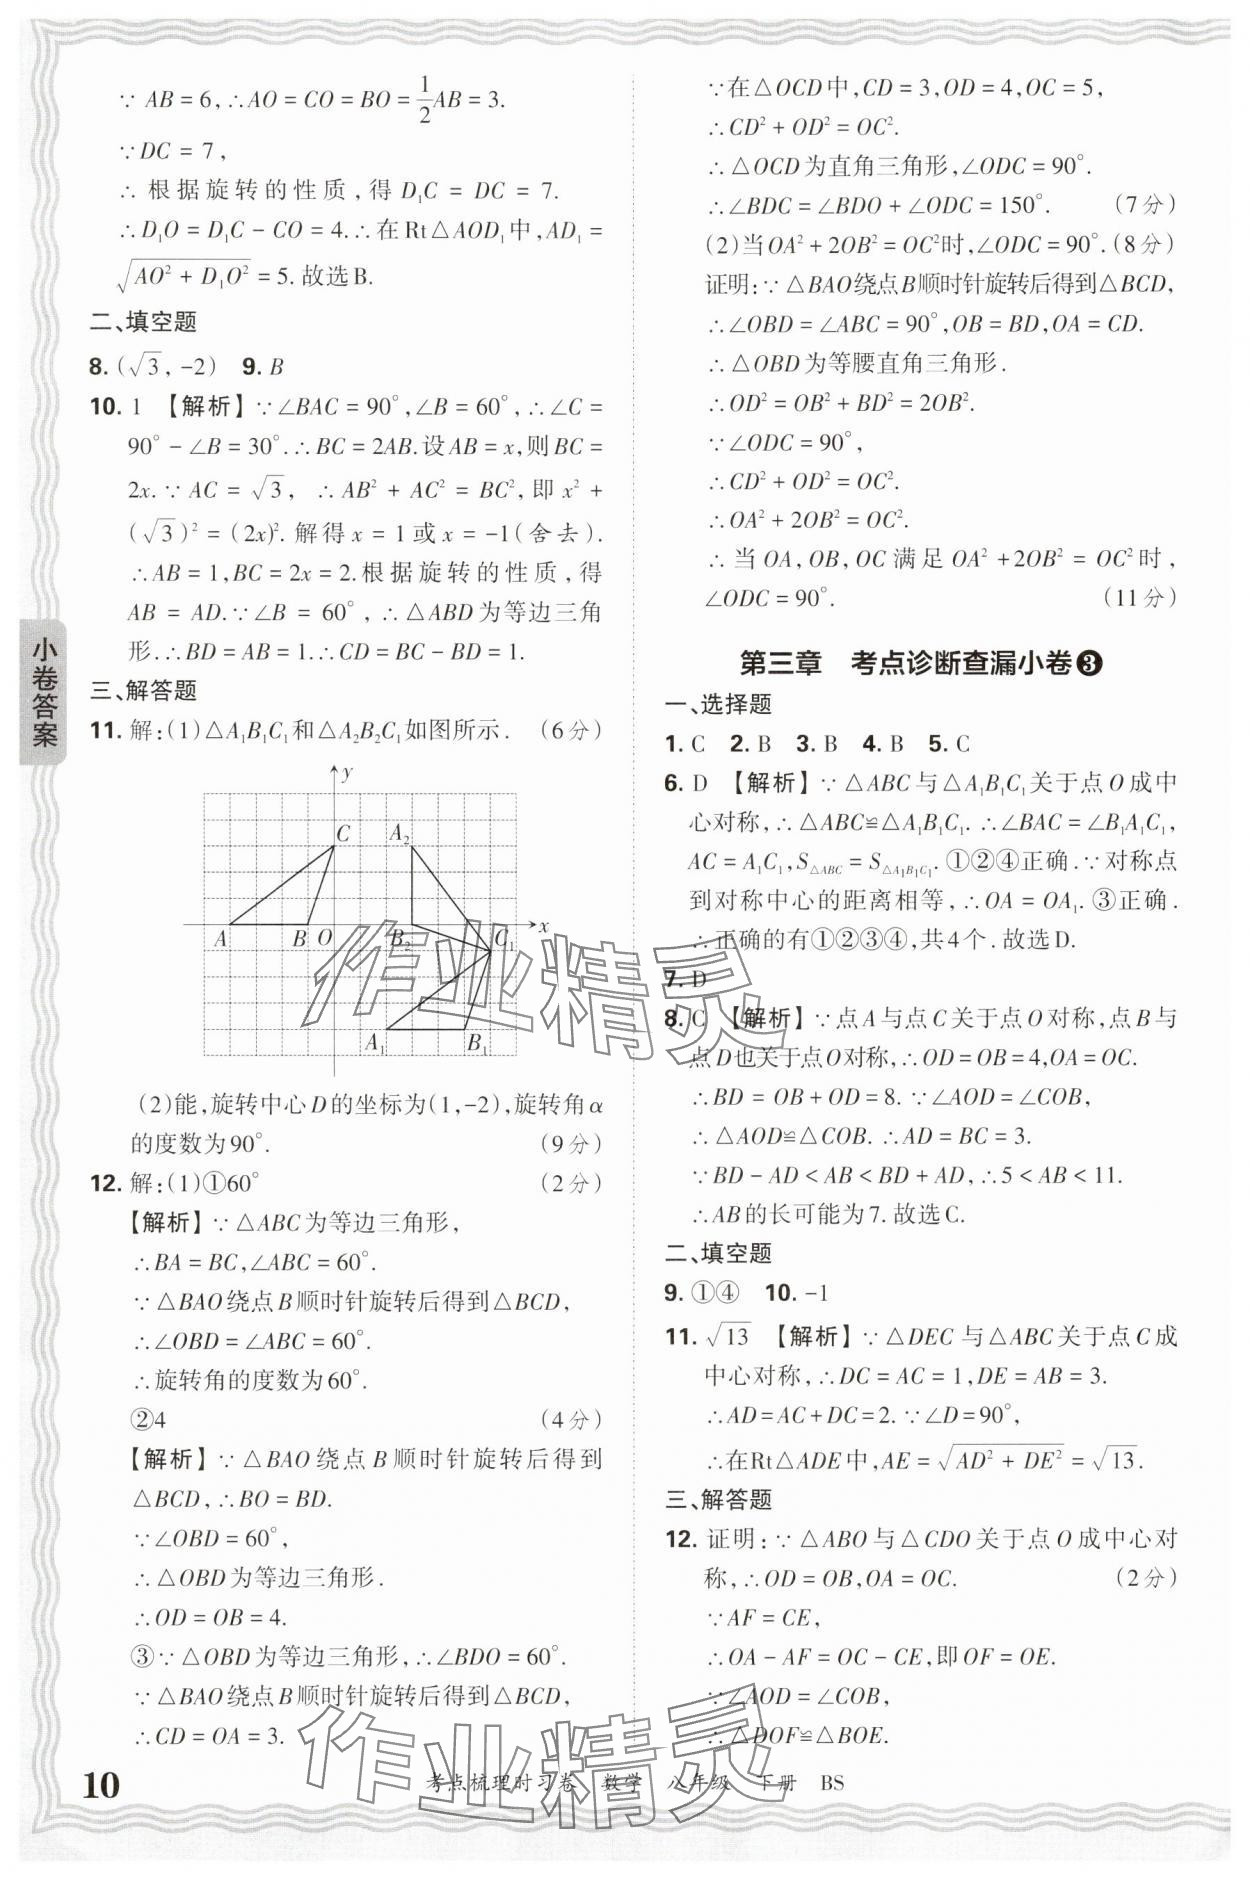 ∵ AB = 6, ∴AO = CO = BO = 1/2 AB = 3.
∵DC = 7,
∴ 根据旋转的性质,得 D₁C = DC = 7.
∴D₁O = D₁C − CO = 4. ∴在Rt△AOD₁中,AD₁ =
√(AO² + D₁O²) = 5. 故选B.
二、填空题
8. (√3, −2) 9. B
10. 1 【解析】∵∠BAC = 90°,∠B = 60°,∴∠C =
90° − ∠B = 30°. ∴BC = 2AB. 设 AB = x, 则 BC =
2x. ∵ AC = √3, ∴AB² + AC² = BC², 即 x² +
(√3)² = (2x)². 解得 x = 1 或 x = −1(舍去).
∴AB = 1, BC = 2x = 2. 根据旋转的性质,得
AB = AD. ∵∠B = 60°, ∴△ABD为等边三角
形. ∴BD = AB = 1. ∴CD = BC − BD = 1.
三、解答题
11. 解:(1)△A₁B₁C₁和△A₂B₂C₁如图所示. (6分)
y
C A₂
A B O B₂ C₁ x
A₁ B₁
(2)能,旋转中心D的坐标为(1,−2),旋转角α
的度数为90°. (9分)
12. 解:(1)①60° (2分)
【解析】∵△ABC为等边三角形,
∴BA = BC,∠ABC = 60°.
∵△BAO绕点B顺时针旋转后得到△BCD,
∴∠OBD = ∠ABC = 60°.
∴旋转角的度数为60°.
②4 (4分)
【解析】∵△BAO绕点B顺时针旋转后得到
△BCD, ∴BO = BD.
∵∠OBD = 60°,
∴△OBD为等边三角形.
∴OD = OB = 4.
③∵△OBD为等边三角形,∴∠BDO = 60°.
∵△BAO绕点B顺时针旋转后得到△BCD,
∴CD = OA = 3.
∵在△OCD中,CD = 3,OD = 4,OC = 5,
∴CD² + OD² = OC².
∴△OCD为直角三角形,∠ODC = 90°.
∴∠BDC = ∠BDO + ∠ODC = 150°. (7分)
(2)当OA² + 2OB² = OC²时,∠ODC = 90°. (8分)
证明:∵△BAO绕点B顺时针旋转后得到△BCD,
∴∠OBD = ∠ABC = 90°,OB = BD,OA = CD.
∴△OBD为等腰直角三角形.
∴OD² = OB² + BD² = 2OB².
∵∠ODC = 90°,
∴CD² + OD² = OC².
∴OA² + 2OB² = OC².
∴当 OA, OB, OC 满足 OA² + 2OB² = OC² 时,
∠ODC = 90°. (11分)
第三章 考点诊断查漏小卷❸
一、选择题
1. C 2. B 3. B 4. B 5. C
6. D 【解析】∵△ABC与△A₁B₁C₁关于点O成中
心对称,∴△ABC≌△A₁B₁C₁. ∴∠BAC = ∠B₁A₁C₁,
AC = A₁C₁, S△ABC = S△A₁B₁C₁. ①②④正确. ∵对称点
到对称中心的距离相等,∴OA = OA₁. ③正确.
∴正确的有①②③④,共4个. 故选D.
7. D
8. C 【解析】∵点A与点C关于点O对称,点B与
点D也关于点O对称,∴OD = OB = 4,OA = OC.
∴BD = OB + OD = 8. ∵∠AOD = ∠COB,
∴△AOD≌△COB. ∴AD = BC = 3.
∵BD − AD < AB < BD + AD,∴5 < AB < 11.
∴AB的长可能为7. 故选C.
二、填空题
9. ①④ 10. −1
11. √13 【解析】∵△DEC与△ABC关于点C成
中心对称,∴DC = AC = 1,DE = AB = 3.
∴AD = AC + DC = 2. ∵∠D = 90°,
∴在Rt△ADE中,AE = √(AD² + DE²) = √13.
三、解答题
12. 证明:∵△ABO与△CDO关于点O成中心对
称,∴OD = OB,OA = OC. (2分)
∵AF = CE,
∴OA − AF = OC − CE,即OF = OE.
∵∠AOD = ∠COB,
∴△DOF≌△BOE.
小卷答案
10
考点梳理时习卷 数学 八年级 下册 BS
作业精灵
作业精灵